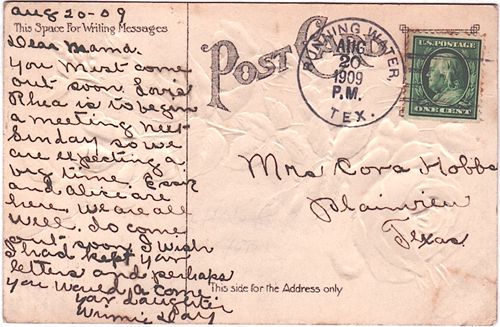 aug 20-09
This Space For Writing Messages
Dear Mama.
you must come
out soon
Rhea is to begin
a meeting next
Sunday so we
are expecting a
big time.
and alice are
here. We are all
well. So come
out soon I wish
I had kept your
letters and perhaps
you would a come
your daughter
Winnie Day
POST CARD
RUNNING WATER,
AUG
20
1909
P.M.
TEX.
U.S. POSTAGE
ONE CENT
Mrs Cora Hobbs
Plainview
Texas
This side for the Address only